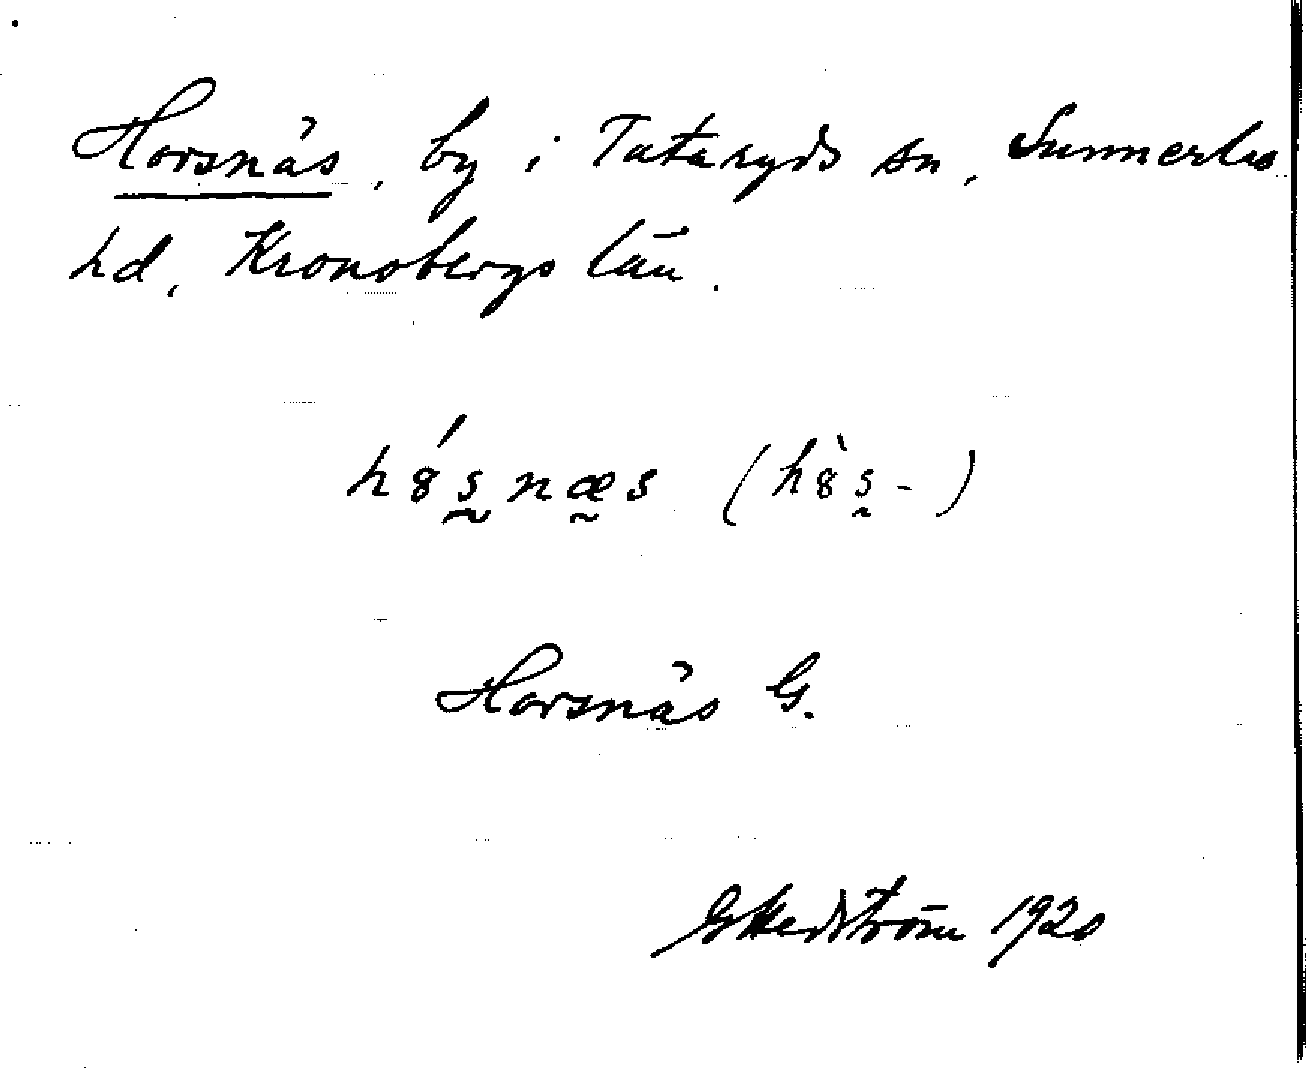 Horsnäs, by i Tutaryds sn, Sunnerbo
hd, Kronobergs län.
hȣ́s̰næ̰s (hȣ̀s̰-)
Horsnäs G.
G Hedström 1920